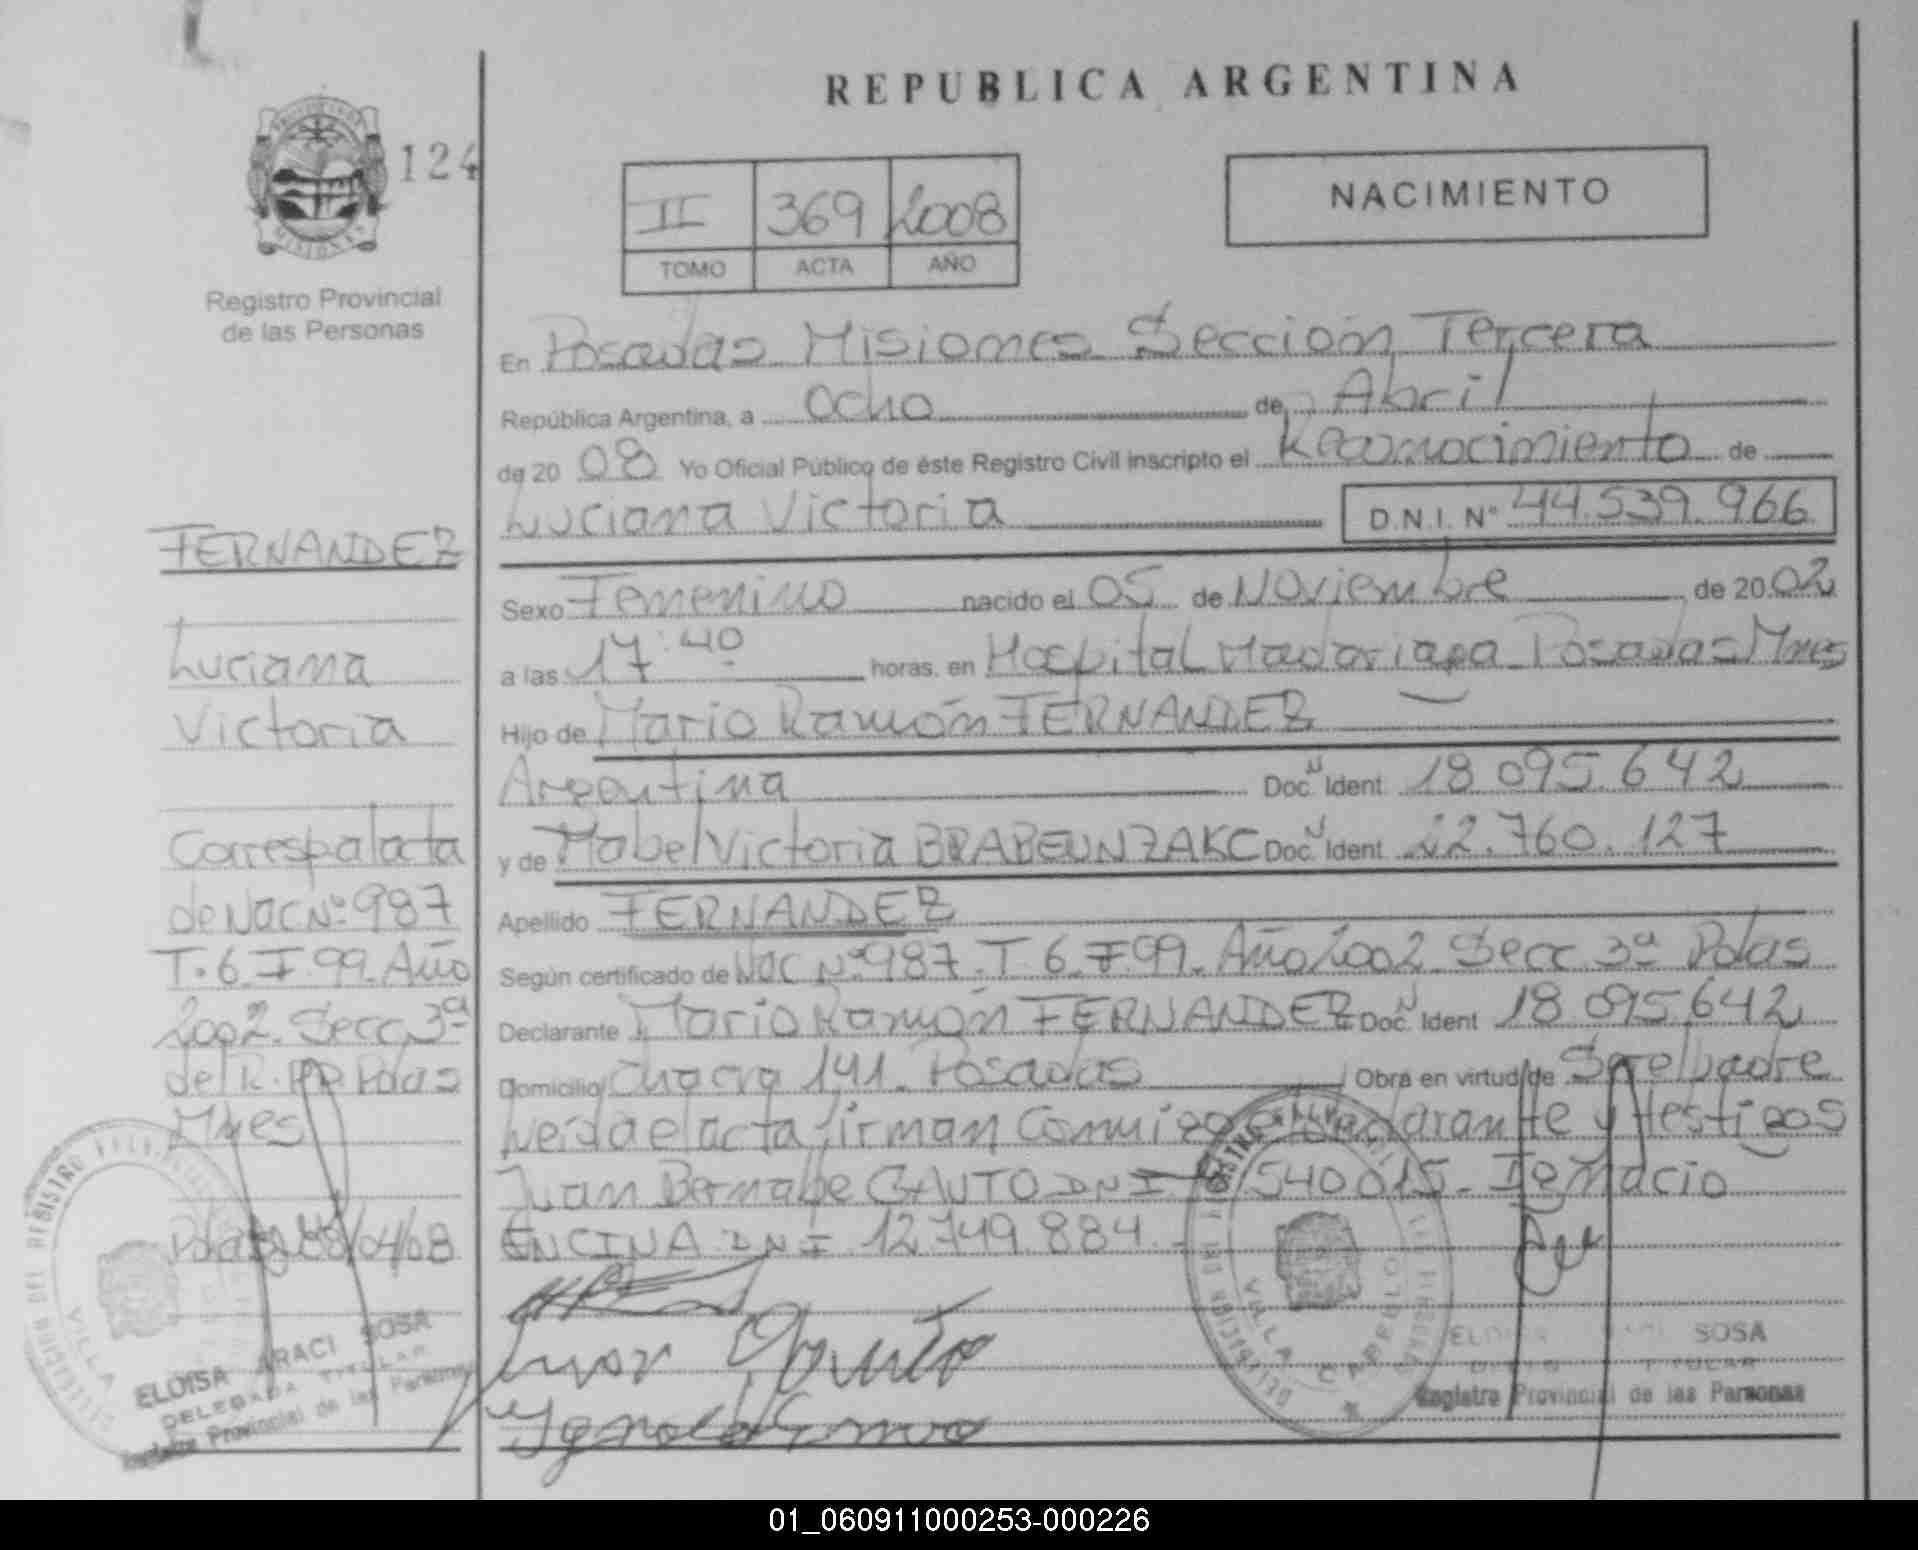 REPUBLICA ARGENTINA
124
MISIONES
Registro Provincial
de las Personas
II 369 2008
TOMO ACTA AÑO
NACIMIENTO
En Posadas Misiones Sección Tercera
República Argentina, a Ocho de Abril
de 20 08 Yo Oficial Público de éste Registro Civil inscripto el Reconocimiento de
Luciana Victoria D.N.I. N° 44.539.966
Sexo Femenino nacido el 05 de Noviembre de 2002
a las 17:40 horas, en Hospital Madariaga Posadas Mnes
Hijo de Mario Ramón FERNANDEZ
Argentina Doc. N Ident 18 095.642
y de Mabel Victoria Doc. N Ident 22.760.127
Apellido FERNANDEZ
Según certificado de Nac N° 987. T. 6. F. 99. Año 2002 Secc 3a Pdas
Declarante Mario Ramón FERNANDEZ Doc. N Ident 18 095.642
Domicilio Chacra 141. Posadas Obra en virtud de Ser el padre
Leída el acta firman Conmigo el declarante y testigos
Juan Bernabe GAUTO DNI 540 015. Ignacio
ENCINA DNI 12.749.884.
FERNANDEZ
Luciana
Victoria
Corresp al acta
de Nac N° 987
T. 6. F. 99. Año
2002. Secc 3a
del R. PP Pdas
Mnes
Pdas 08/04/08
ELOISA ARACI SOSA
DELEGADA TITULAR
Registro Provincial de las Personas
VILLA CABELLO
SOSA
TITULAR
Registro Provincial de las Personas
01_060911000253-000226